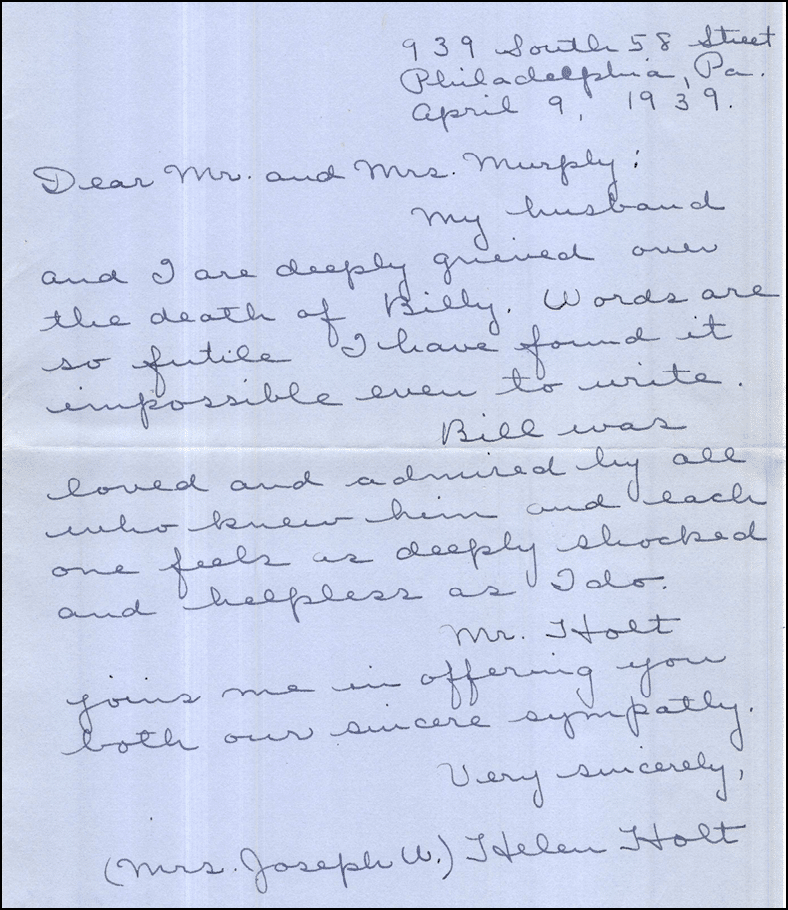 939 South 58 Street
Philadelphia, Pa.
April 9, 1939.
Dear Mr. and Mrs. Murphy:
My husband
and I are deeply grieved over
the death of Billy. Words are
so futile I have found it
impossible even to write.
Bill was
loved and admired by all
who knew him and each
one feels as deeply shocked
and helpless as I do.
Mr. Holt
joins me in offering you
both our sincere sympathy.
Very sincerely,
(Mrs. Joseph W.) Helen Holt